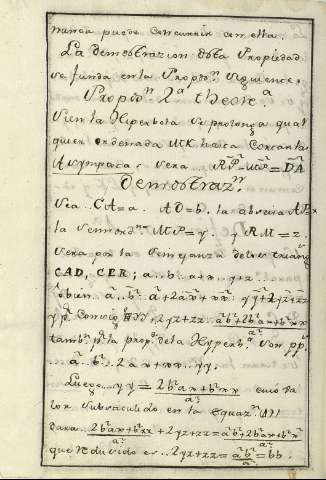 nunca puede concurrir con ella.
La demostrazion desta Propiedad
se funda en la Propoⁿ. siguiente.
Propoⁿ. 2ª theore.ª
Si en la Hiperbola se prolonga qual
quier ordenada MK hasta cortar la
Asymptota: sera
Demostraz.ⁿ
Sea CA=a. AD=b. la abscisa AP=x
la semiord.ᵃ MP=y. y RM=z.
sera por la semejanza de los triang.ˢ
CAD, CER; a..b: a+x..y+z.
o bien a²..b²: a²+2ax+xx: yy+2yz+zz
y p.ʳ yy+2yz+zz = a²b²+2b²ax+b²xx
a²
tamb.ⁿ p.ʳ la prop.ᵈ de la Hyperb.ᵃ son pp.ˢ
a²..b²: 2ax+xx..yy.
Luego yy = 2b²ax+b²xx cuio va
a²
lor substituido en la equaz.ⁿ
dara 2b²ax+b²xx + 2yz+zz = a²b²+2b²ax+b²xx
a² a²
que reducido es 2yz+zz = a²b² = bb.
a²